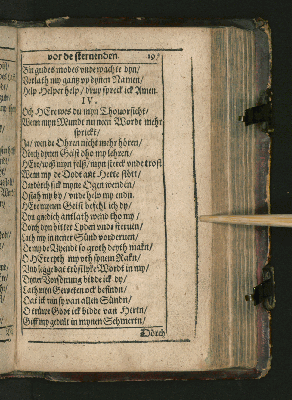 vor de steruenden. 19.
Biß gudes modes vnde wachte dyn/
Vorlath my gantz vp dynen Namen/
Help Helper help/ drup spreck ick Amen.
IV.
Och HEre wes du myn Thouorsicht/
Wenn myn Mundt nu neen Wordt mehr
sprickt/
Ja/ wen de Ohren nicht mehr hören/
Dörch dynen Geist do my lehren/
HEre/ wes myn felß/ myn sterck vnde trost
Wenn my de Dodt aff Herte stött/
Darbörch sick myne Ogen wenden/
O siah my by/ vnde help my endn.
HEre mynen Geist befehl ick dy/
Dyn gnedich antlath wend tho my/
Dorch dyn bitter Lyden vnde steruen/
Lath my in mener Sünd vorderuen/
Ocr my de Vyendt so groth deyth makn/
O HEre help my vth synem Rakn/
Vnd legge dat tröstlyke Wordt in my/
Dyner Vorsöning bidde ick dy/
Lath myn Gewetten ock befindn/
Dat ick rein sy van allen Sündn/
O truwe Godt ick bidde van Hertn/
Geff my gedult in mynen Schmertn/
Dörch